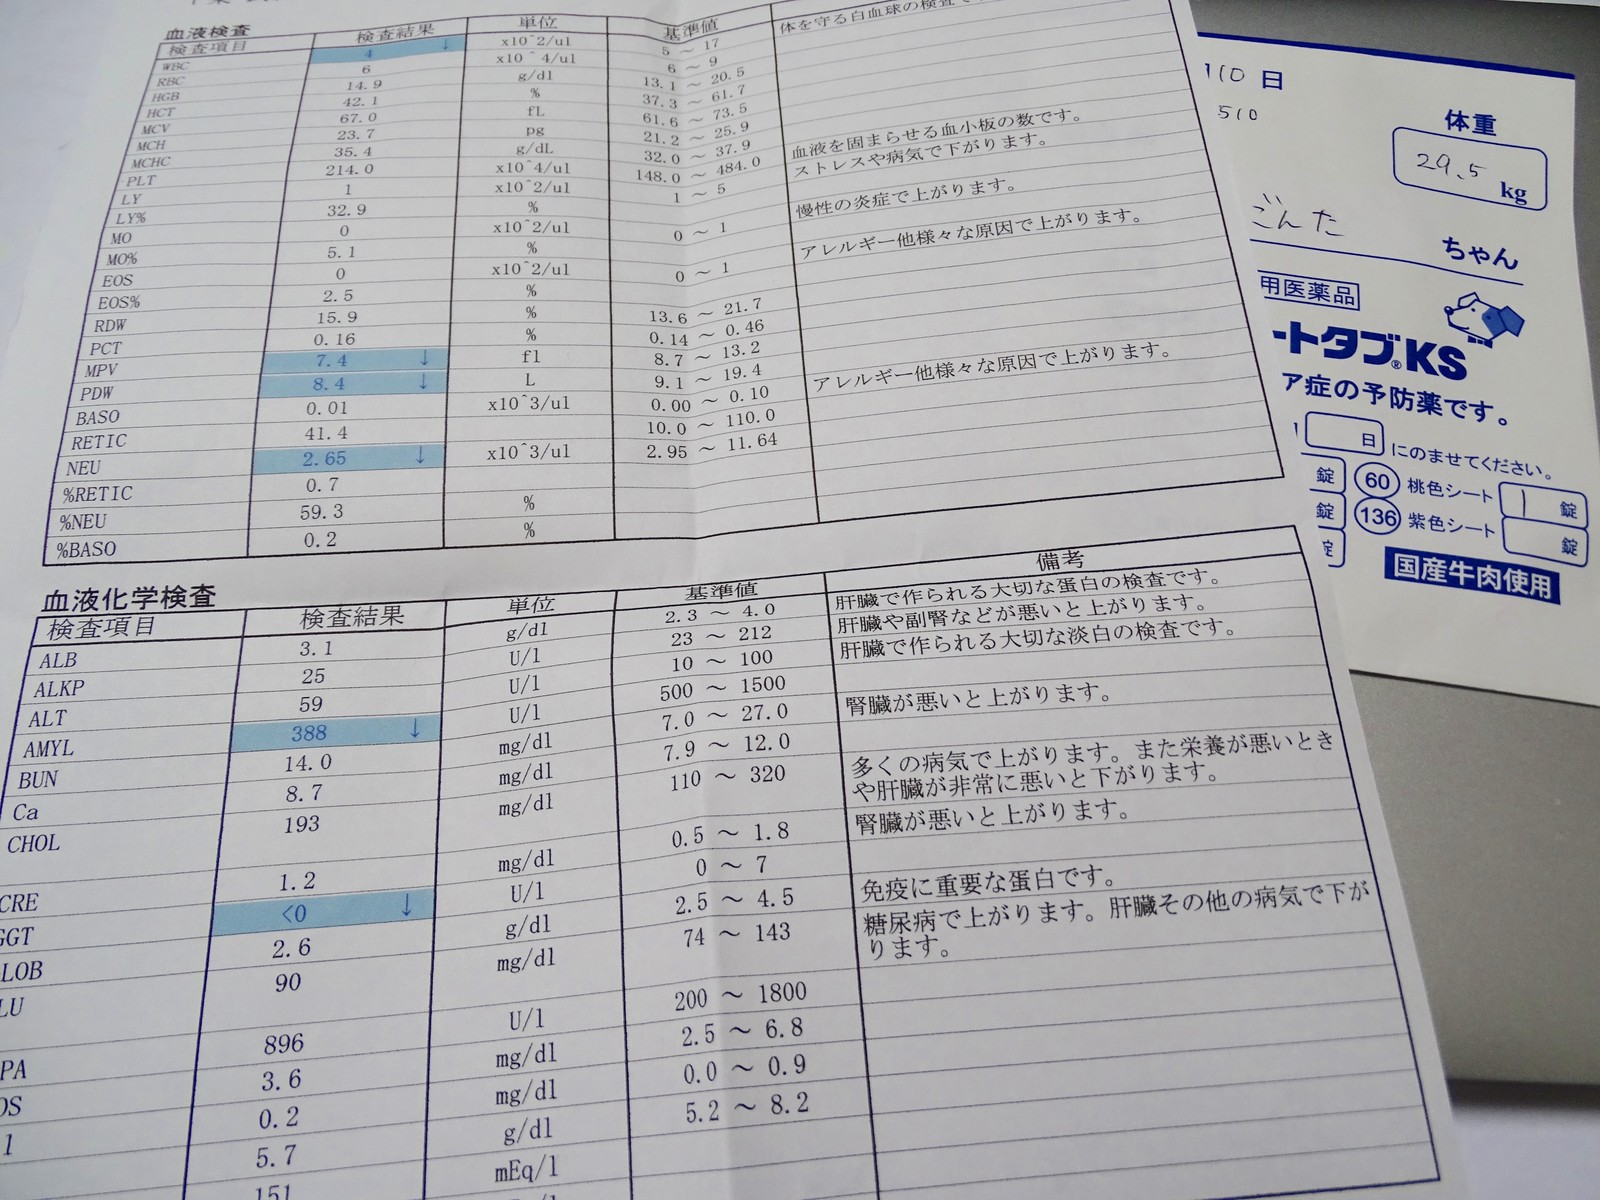 血液検査
検査項目 検査結果 単位 基準値
WBC 4 ↓ x10^2/ul 5 ～ 17 体を守る白血球の検査で
RBC 6 x10^4/ul 6 ～ 9
HGB 14.9 g/dl 13.1 ～ 20.5
HCT 42.1 % 37.3 ～ 61.7
MCV 67.0 fL 61.6 ～ 73.5
MCH 23.7 pg 21.2 ～ 25.9
MCHC 35.4 g/dL 32.0 ～ 37.9
PLT 214.0 x10^4/ul 148.0 ～ 484.0 血液を固まらせる血小板の数です。
LY 1 x10^2/ul 1 ～ 5 ストレスや病気で下がります。
LY% 32.9 %
MO 0 x10^2/ul 0 ～ 1 慢性の炎症で上がります。
MO% 5.1 %
EOS 0 x10^2/ul 0 ～ 1 アレルギー他様々な原因で上がります。
EOS% 2.5 %
RDW 15.9 % 13.6 ～ 21.7
PCT 0.16 % 0.14 ～ 0.46
MPV 7.4 ↓ fl 8.7 ～ 13.2
PDW 8.4 ↓ L 9.1 ～ 19.4
BASO 0.01 x10^3/ul 0.00 ～ 0.10 アレルギー他様々な原因で上がります。
RETIC 41.4 10.0 ～ 110.0
NEU 2.65 ↓ x10^3/ul 2.95 ～ 11.64
%RETIC 0.7
%NEU 59.3 %
%BASO 0.2 %
血液化学検査
検査項目 検査結果 単位 基準値 備考
ALB 3.1 g/dl 2.3 ～ 4.0 肝臓で作られる大切な蛋白の検査です。
ALKP 25 U/l 23 ～ 212 肝臓や副腎などが悪いと上がります。
ALT 59 U/l 10 ～ 100 肝臓で作られる大切な淡白の検査です。
AMYL 388 ↓ U/l 500 ～ 1500
BUN 14.0 mg/dl 7.0 ～ 27.0 腎臓が悪いと上がります。
Ca 8.7 mg/dl 7.9 ～ 12.0
CHOL 193 mg/dl 110 ～ 320 多くの病気で上がります。また栄養が悪いとき
や肝臓が非常に悪いと下がります。
CRE 1.2 mg/dl 0.5 ～ 1.8 腎臓が悪いと上がります。
GGT <0 ↓ U/l 0 ～ 7
LOB 2.6 g/dl 2.5 ～ 4.5 免疫に重要な蛋白です。
LU 90 mg/dl 74 ～ 143 糖尿病で上がります。肝臓その他の病気で下が
ります。
PA 896 U/l 200 ～ 1800
OS 3.6 mg/dl 2.5 ～ 6.8
0.2 mg/dl 0.0 ～ 0.9
5.7 g/dl 5.2 ～ 8.2
151 mEq/l
110 日
510
体重
29.5 kg
ごんた ちゃん
用医薬品
ートタブ®KS
ア症の予防薬です。
日 にのませてください。
錠 60 桃色シート 1 錠
錠 136 紫色シート 錠
錠
国産牛肉使用